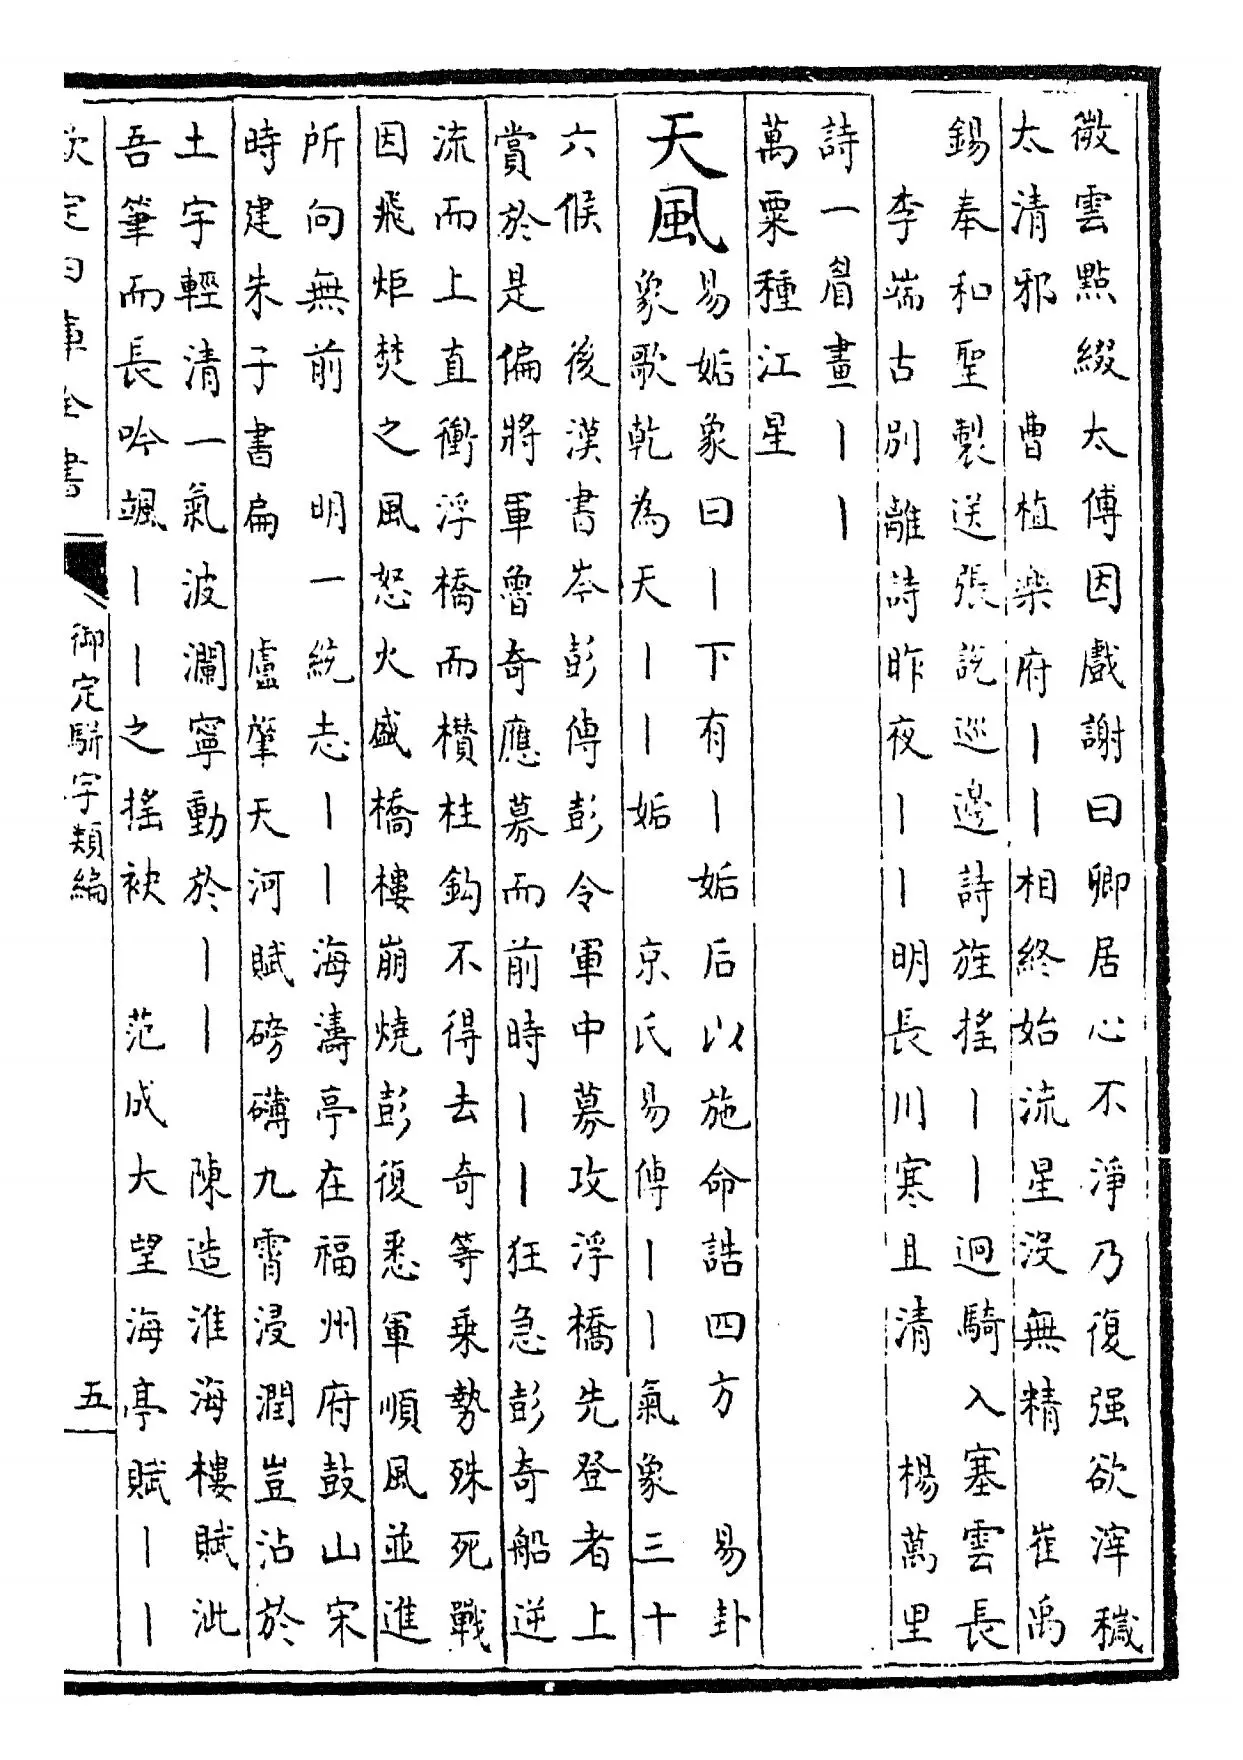 微雲點綴太傅因戲謝曰卿居心不淨乃復强欲滓穢
太清邪　曹植樂府｜｜相終始流星沒無精　崔禹
錫奉和聖製送張說巡邊詩旌搖｜｜迴騎入塞雲長
李端古別離詩昨夜｜｜明長川寒且清　楊萬里
詩一眉畫｜｜
萬粟種江星
天風
易姤象曰｜下有｜姤后以施命誥四方　易卦
象歌乾為天｜｜姤　京氏易傳｜｜氣象三十
六候　後漢書岑彭傳彭令軍中募攻浮橋先登者上
賞於是偏將軍魯奇應募而前時｜｜狂急彭奇船逆
流而上直衝浮橋而欑柱鈎不得去奇等乗勢殊死戰
因飛炬焚之風怒火盛橋樓崩燒彭復悉軍順風並進
所向無前　明一統志｜｜海濤亭在福州府鼓山宋
時建朱子書扁　盧肇天河賦磅礴九霄浸潤豈沾於
土宇輕清一氣波瀾寧動於｜｜　陳造淮海樓賦泚
吾筆而長吟颯｜｜之搖袂　范成大望海亭賦｜｜
欽定四庫全書
御定駢字類編
五